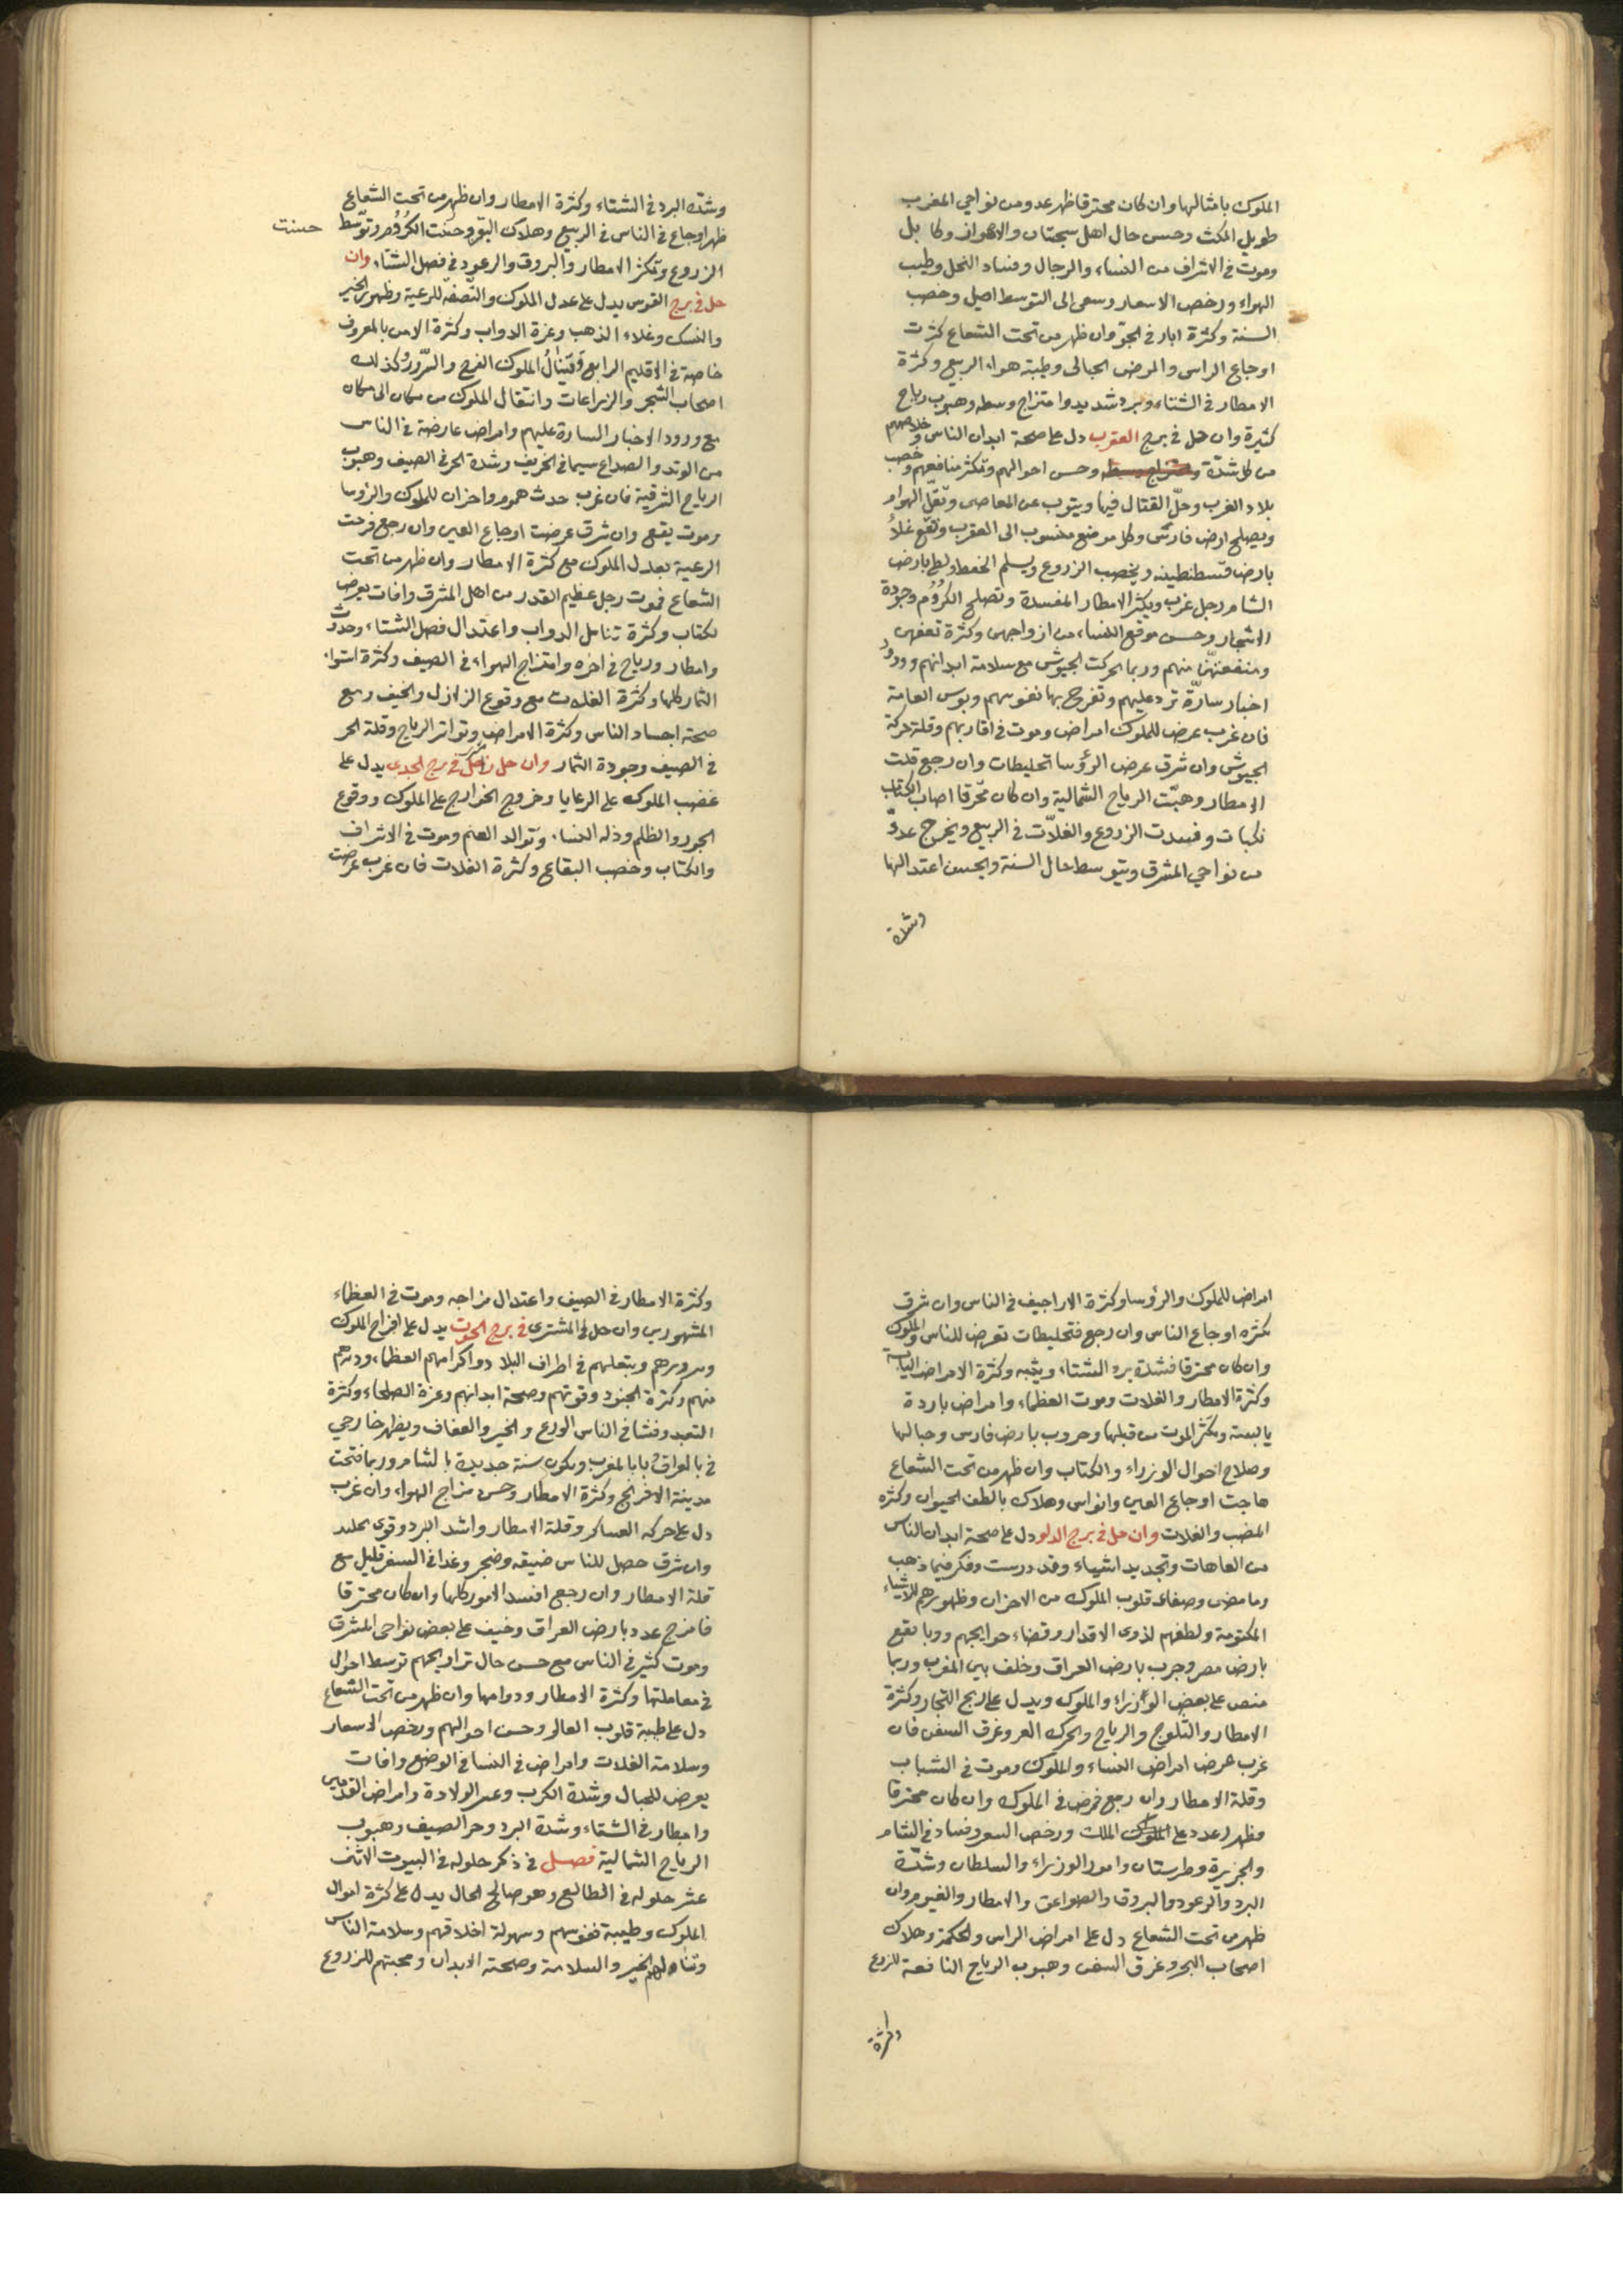 الملوك بامثالها وان كان محترقا ظهر عدو من نواحي المغرب
طويل المكث وحسن حال اهل سجستان والاهواز وكابل
وموت في الاشراف من النساء والرجال وفساد النحل وطيب
الهواء ورخص الاسعار وسعى الى التوسط اميل وخصب
السنة وكثرة ابار في الجو وان ظهر من تحت الشعاع كثرت
اوجاع الراس والمرض الحبالى وطيبة هواء الربيع وكثرة
الامطار في الشتاء وبرد شديد وامتزاج وسطه وهبوب رياح
كثيرة وان حل في برج العقرب دل على صحة ابدان الناس وخلاصهم
من كل شدّة وحسن احوالهم وتكثر منافعهم وخصب
بلاد الغرب وحلّ القتال فيها ويتوب عن المعاصى وتقلّ الهوام
ويصلح ارض فارس وكل موضع منسوب الى العقرب وتقع غلاء
بارض قسطنطينه ويخصب الزروع ويسلم الخط بارض
الشام رجل غرب ويكثر الامطار المفسدة وتصلح الكروم وجودة
الاشجار وحسن موقع النساء من ازواجهن وكثرة تعففهن
ومنفعتهنّ منهم وربما تحركت الجيوش مع سلامة ابدانهم وورود
اخبار سارّة ترد عليهم وتفرح بها نفوسهم وبوس العامة
فان غرب عرض للملوك امراض وموت في اقاربهم وقلة حركة
الجيوش وان شرق عرض الرؤسا تخليطات وان رجع قلت
الامطار وهبّت الرياح الشمالية وان كان محترقا اصاب الكتاب
نكبات وفسدت الزروع والغلاّت في الربيع ويخرج عدوّ
من نواحي المشرق ويتوسط حال السنة ويحسن اعتدالها
وشدة
وشدة البرد في الشتاء وكثرة الامطار وان ظهر من تحت الشعاع
ظهر اوجاع في الناس في الربيع وهلاك البقر وحسنت الكروم وتوسّط
حسنت
الزروع وتكثر الامطار والبروق والرعود في فصل الشتاء وان
حل في برج القوس يدل على عدل الملوك والنصفة للرعية وظهور الخير
والنسك وغلاء الذهب وعزة الدواب وكثرة الامر بالمعروف
خاصة في الاقليم الرابع وينال الملوك الفرح والسّرور وكذلك
اصحاب الشجر والزراعات وانتقال الملوك من مكان الى مكان
مع ورود الاخبار السارة عليهم وامراض عارضة في الناس
من الوتد والصداع سيما في الخريف وشدة الحر في الصيف وهبوب
الرياح الشرقية فان غرب حدث هموم واحزان للملوك والرؤسا
وموت يقع وان شرق عرضت اوجاع العين وان رجع فرحت
الرعية بعدل الملوك مع كثرة الامطار وان ظهر من تحت
الشعاع فموت رجل عظيم القدر من اهل المشرق وافات يعرض
لكتاب وكثرة تناسل الدواب واعتدال فصل الشتاء وحدوث
وامطار ورياح في اخره وامتزاج الهواء في الصيف وكثرة استواء
الثمار كلها وكثرة الغلات مع وقوع الزلازل والخيف ومع
صحة اجساد الناس وكثرة الامراض وتواتر الرياح وقلة الحر
في الصيف وجودة الثمار وان حل زحل في برج الجدي يدل على
غضب الملوك على الرعايا وخروج الخوارج على الملوك ووقوع
الجور والظلم وذله النساء وتوالد الغنم وموت في الاشراف
والكتاب وخصب البقاع وكثرة الغلات فان غرب عرضت
امراض للملوك والرؤسا وكثرة الاراجيف في الناس وان شرق
كثره اوجاع الناس وان رجع فتخليطات تعرض للناس والملوك
وان كان محترقا فشدة برد الشتاء ويبسه وكثرة الامراض اليابسة
وكثرة الامطار والغلات وموت العظماء وامراض باردة
يابسة ويكثر الموت من قبلها وحروب بارض فارس وجبالها
وصلاح احوال الوزراء والكتاب وان ظهر من تحت الشعاع
هاجت اوجاع العين والراس وهلاك بالطف الحيوان وكثره
الخصب والغلات وان حل في برج الدلو دل على صحة ابدان الناس
من العاهات وتجديد اشياء وقد درست وفكر فيما ذهب
وما مضى وصفاء قلوب الملوك من الاحزان وظهورهم للاشياء
المكتومة ولطفهم لذوى الاقدار وقضاء حوايجهم ووبا يقع
بارض مصر وحرب بارض العراق وخلف بين المغرب وربما
منص على بعض الوزراء والملوك ويدل على ربح التجار وكثرة
الامطار والثلوج والرياح وغرق السفن فان
غرب عرض امراض النساء والملوك وموت في الشباب
وقلة الامطار وان رجع فمرض في الملوك وان كان محترقا
فظهر عدد على الملك ورخص السعر وفساد في الشام
والجزيرة وطبرستان وامور الوزراء والسلطان وشدّة
البرد والرعود والبروق والصواعق والامطار والغيوم وان
ظهر من تحت الشعاع دل على امراض الراس والحكمة وهلاك
اصحاب البحر وغرق السفن وهبوب الرياح النافعة للزروع
وكثرة
وكثرة الامطار في الصيف واعتدال مزاجه وموت في العظماء
المشهورين وان حل المشترى في برج الحوت يدل على افراح الملوك
وسرورهم وبتعلهم في اطراف البلاد واكرامهم العظماء ودرهم
منهم وكثرة الجنود وقوتهم وصحة ابدانهم وعزة الصلحاء وكثرة
التعبد وفشا في الناس الورع والخير والعفاف ويظهر خارجي
في بالعراق وبابا لمغرب ويكون سنة جديدة بالشام وربما فتحت
مدينة الافرنج وكثرة الامطار وحسن مزاج الهواء وان غرب
دل على حركه العساكر وقلة الامطار واشد البرد وقوى
وان شرق حصل للناس ضيقه وضجر وغدا في السفر قليل مع
قلة الامطار وان رجع افسد الامور كلها وان كان محترقا
فامزج عدد بارض العراق وخيف على بعض نواحى المشرق
وموت كثير في الناس مع حسن حال تراريحهم توسط احوال
في معاملتها وكثرة الامطار ودوامها وان ظهر من تحت الشعاع
دل على طيبة قلوب العالم وحسن احوالهم ورخص الاسعار
وسلامة الغلات وامراض في النسا في الوضع وافات
يعرض للحبال وشدة الكرب وعسر الولادة وامراض القدمين
وامطار في الشتاء وشدة البرد وحر الصيف وهبوب
الرياح الشمالية فصل في ذكر حلوله في البيوت الاثنى
عشر حلوله في الطالع وهو صالح الحال يدل على كثرة اموال
الملوك وطيبة نفوسهم وسهولة اخلاقهم وسلامة الناس
وتناولهم الخير والسلامة وصحة الابدان ومحبتهم للزروع